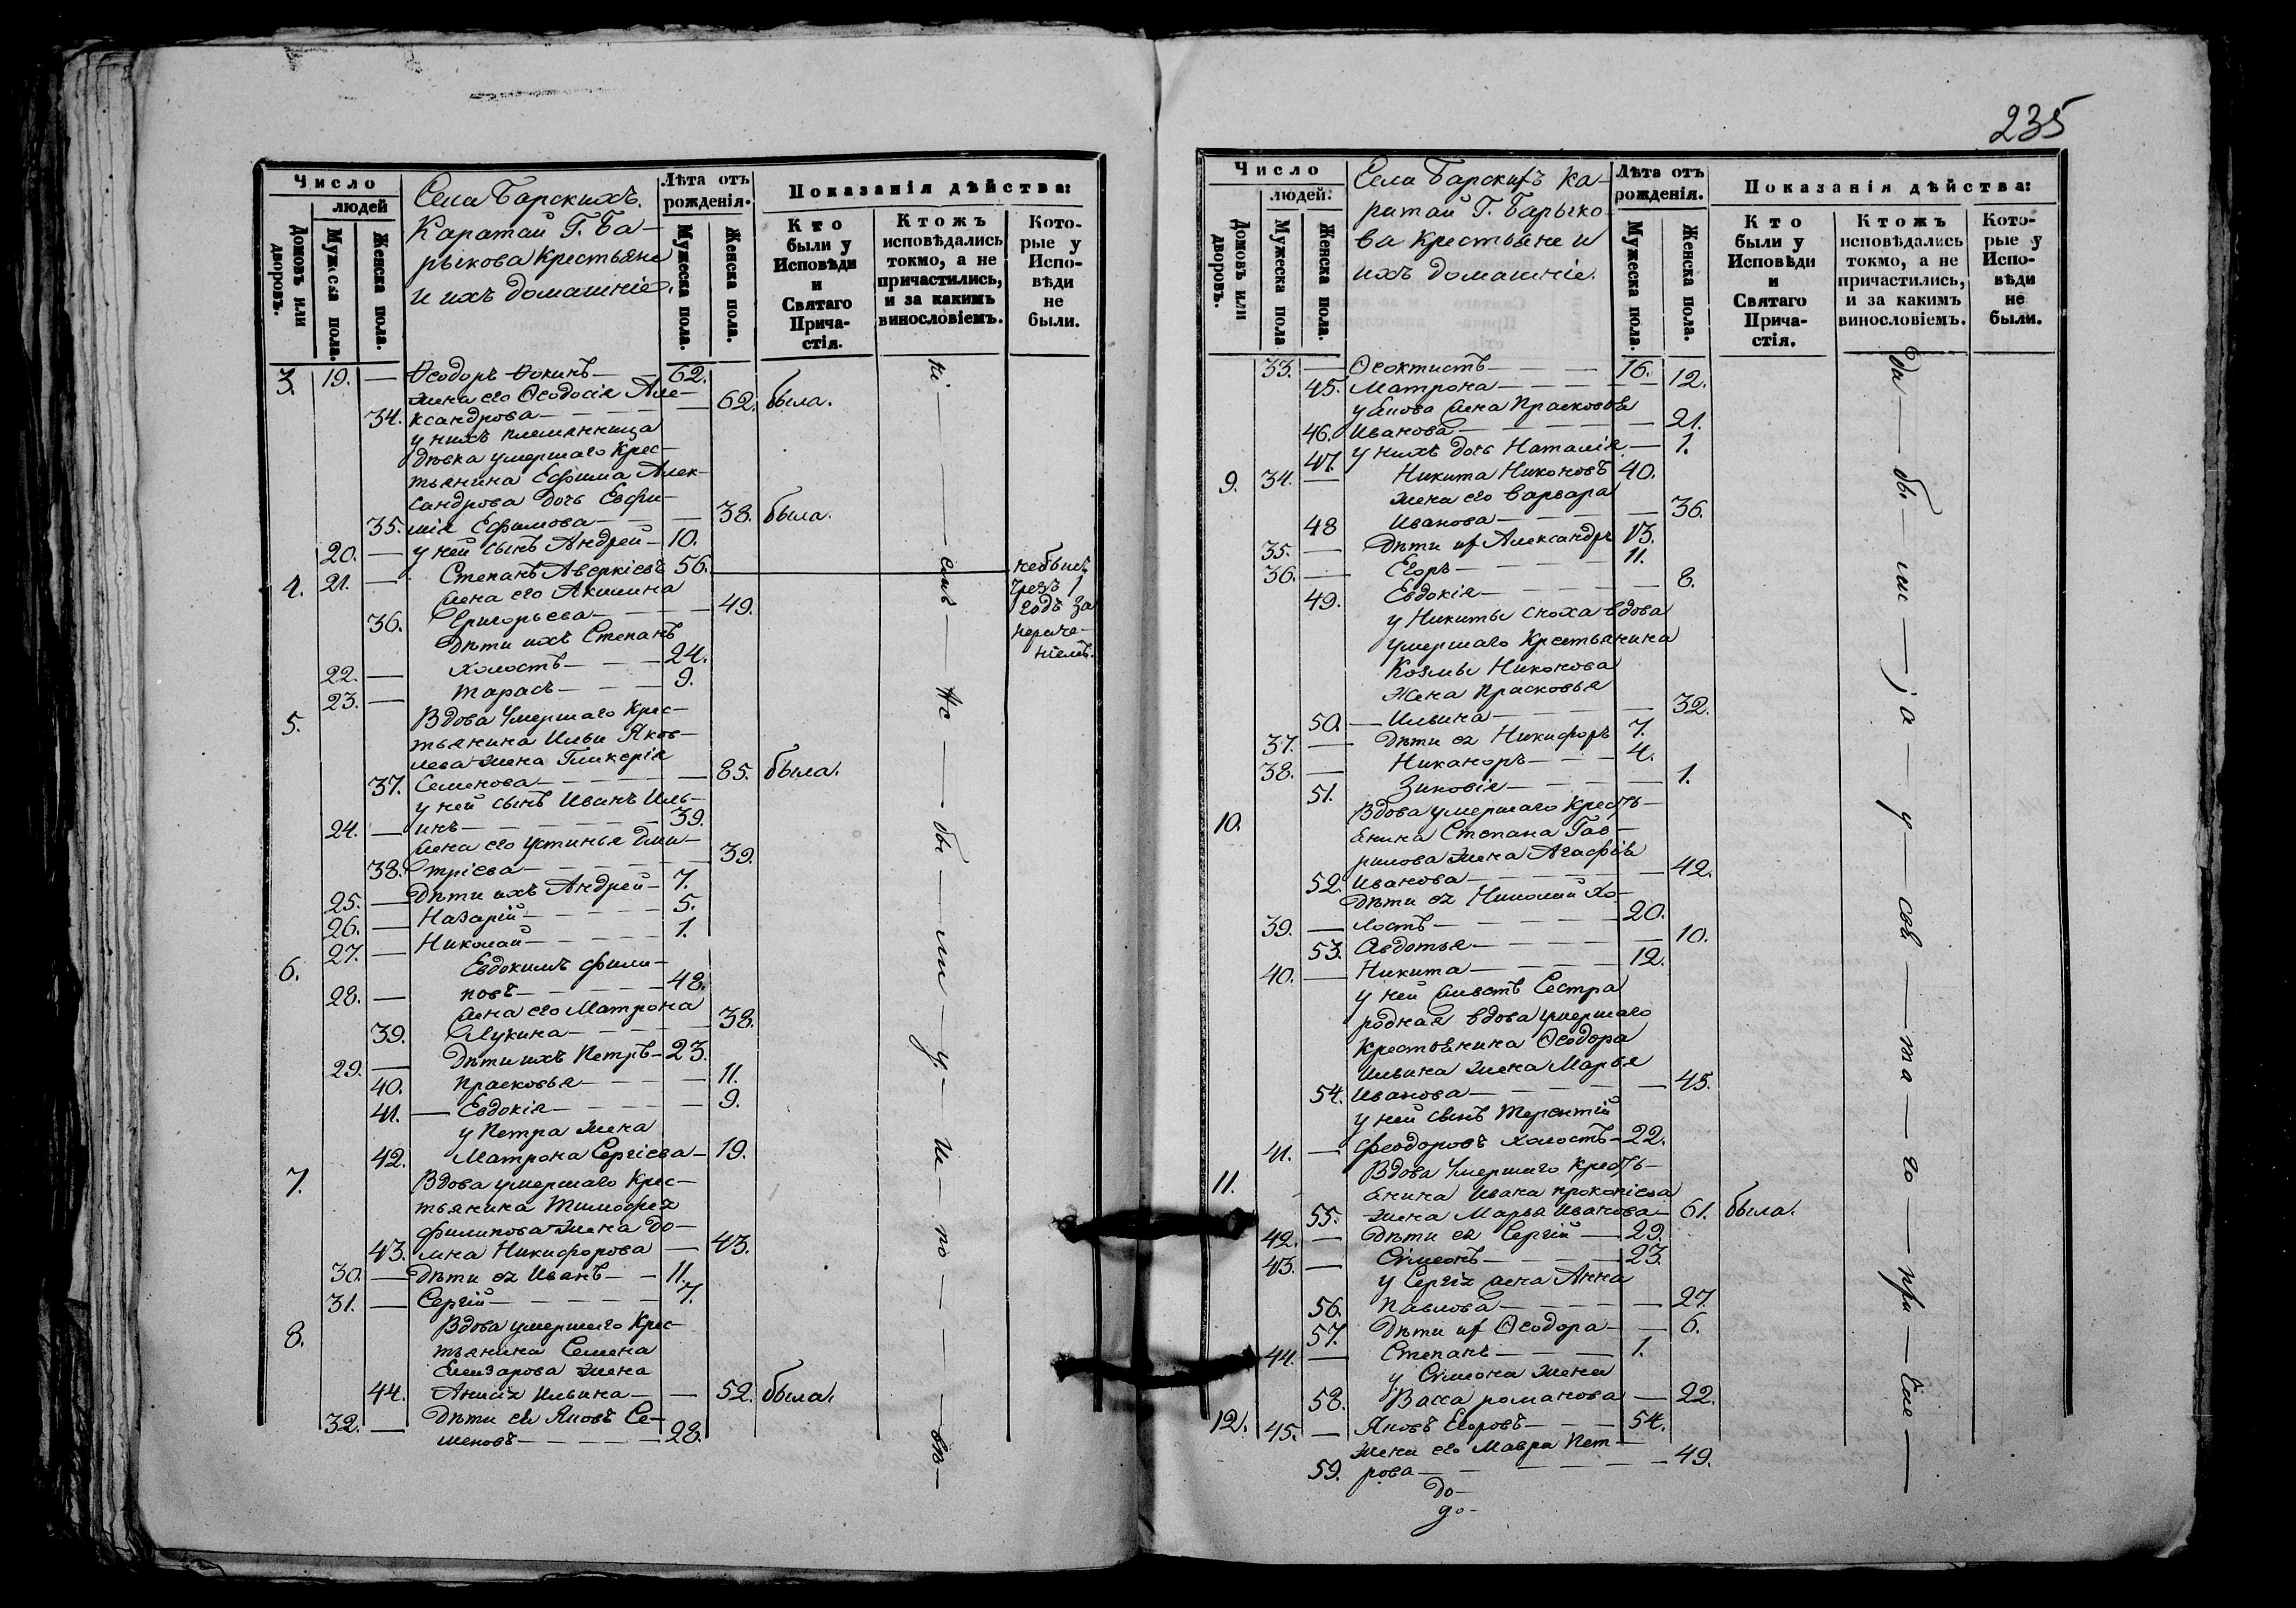 235
Число
людей
Домовъ или дворовъ.
Мужеска пола.
Женска пола.
Села Барскихъ
Каратай Г. Ба-
рыкова Крестьяне
и ихъ домашніе.
Лѣта отъ
рожденія.
Мужеска пола.
Женска пола.
Показанія дѣйства:
Кто
были у
Исповѣди
и
Святаго
Прича-
стія.
Ктожъ
исповѣдались
токмо, а не
причастились,
и за какимъ
винословіемъ.
Кото-
рые у
Испо-
вѣди
не
были.
3. 19. — Ѳеодоръ Ѳокинъ — 62.
жена его Ѳеодосія Але-
34. ксандрова — — 62. была.
у нихъ племянница
дѣвка умершаго Крес-
тьянина Ефима Алек-
сандрова дочь Евфи-
35. мія Ефимова — — 38. была.
20. — у ней сынъ Андрей — 10.
4. 21. — Степанъ Аверкіевъ 56. небылъ
жена его Акилина чрезъ 1
36. Григорьева — — 49. годъ за
дѣти ихъ Степанъ нераче-
22. — холостъ — 24. ніемъ.
23. — Тарасъ — 9.
5. Вдова умершаго Крес-
тьянина Ильи Яков-
лева жена Гликерія
37. Семенова — — 85. была.
у ней сынъ Иванъ Иль-
24. — инъ — 39.
жена его Устинья Дми-
38. тріева — — 39.
25. — Дѣти ихъ Андрей — 7.
26. — Назарій — 5.
27. — Николай — 1.
6. Евдокимъ Фили-
28. — повъ — 48.
жена его Матрона
39. Лукина — — 38.
29. — Дѣти ихъ Петръ — 23.
40. Прасковья — — 11.
41. — Евдокія — — 9.
у Петра жена
42. Матрона Сергіева — 19.
7. Вдова умершаго Крес-
тьянина Тимофея
Филипова жена До-
43. мна Никифорова — 43.
30. — Дѣти ея Иванъ — 11.
31. — Сергій — 7.
8. Вдова умершаго Крес-
тьянина Семена
Елизарова жена
44. Анисія Ильина — — 52. была.
32. — Дѣти ея Яковъ Се-
меновъ — 28.
Число
людей:
Домовъ или дворовъ.
Мужеска пола
Женска пола.
Села Барскихъ Ка-
ратай Г. Барыко-
ва Крестьяне и
ихъ домашніе.
Лѣта отъ
рожденія.
Мужеска пола.
Женска пола.
Показанія дѣйства:
Кто
были у
Исповѣди
и
Святаго
Прича-
стія.
Ктожъ
исповѣдались
токмо, а не
причастились,
и за какимъ
винословіемъ.
Кото-
рые у
Испо-
вѣди
не
были.
33. — Ѳеоктистъ — 16.
45. Матрона — — 12.
у Якова жена Прасковья
46. Иванова — — 21.
47. у нихъ дочь Наталія — 1.
9. 34. — Никита Никоновъ 40.
жена его Варвара
48 Иванова — — 36.
35. — Дѣти их Александръ 13.
36. — Егоръ — 11.
49. Евдокія — — 8.
у Никиты сноха вдова
умершаго Крестьянина
Козмы Никонова
жена Прасковья
50. — Ильина — — 32.
37. — Дѣти ея Никифоръ 7.
38. — Никаноръ — 4.
51. Зиновія — — 1.
10. Вдова умершаго Кресть-
янина Степана Гав-
рилова жена Агафія
52. Иванова — — 42.
Дѣти ея Николай хо-
39. — лостъ — 20.
53. Авдотья — — 10.
40. — Никита — 12.
у ней живетъ Сестра
родная вдова умершаго
Крестьянина Ѳеодора
Ильина жена Марья
54. Иванова — — 45.
у ней сынъ Терентій
41. — Феодоровъ холостъ — 22.
11. Вдова умершаго Кресть-
янина Ивана Прокопіева
55. жена Марья Иванова — 61. была.
42. — Дѣти ея Сергій — 29.
43. — Симеонъ — 23.
у Сергія жена Анна
56. Павлова — — 27.
57. Дѣти их Ѳеодора — — 6.
44. — Степанъ — 1.
у Симеона жена
58. Васса Романова — 22.
12. 45. — Яковъ Егоровъ — 54.
жена его Мавра Пет-
59. рова — — 49.